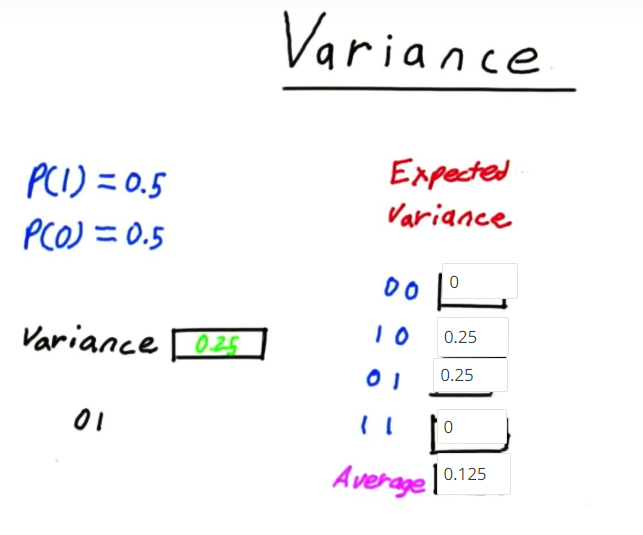 Variance
P(1) = 0.5
P(0) = 0.5
Variance 0.25
01
Expected
Variance
00 0
10 0.25
01 0.25
11 0
Average 0.125